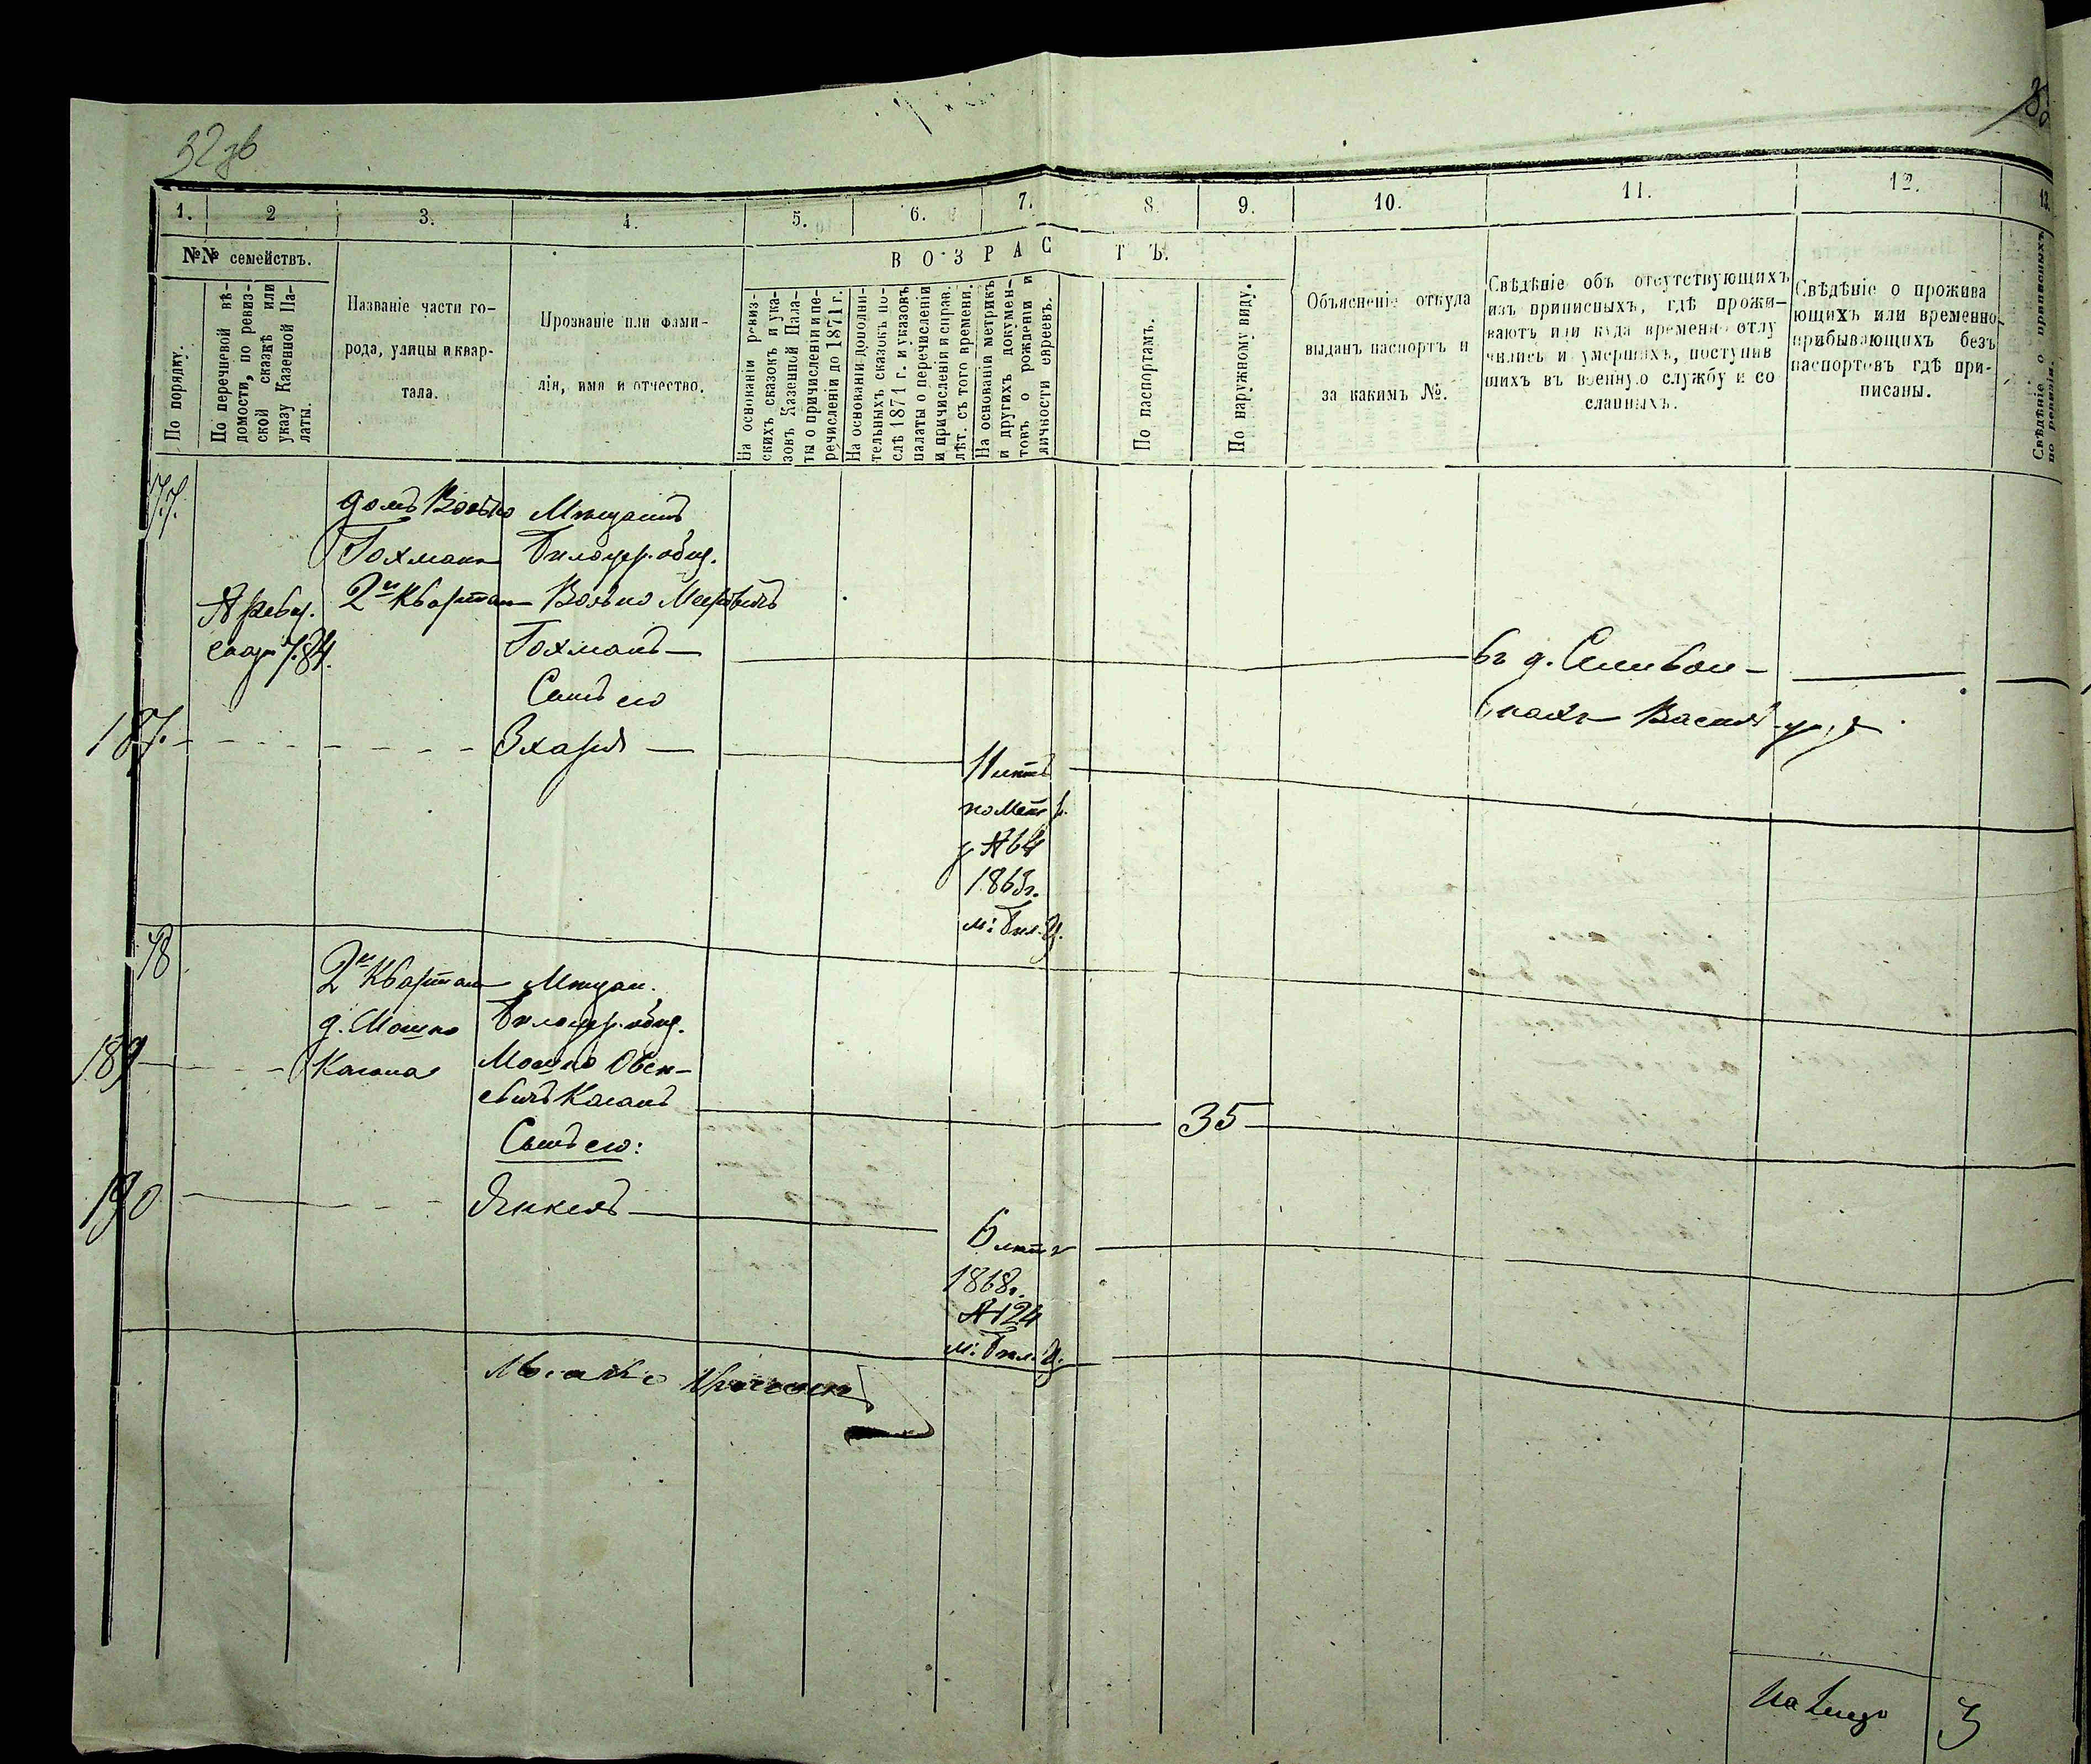 32 зв
1. 2 3. 4. 5. 6. 7. 8. 9. 10. 11. 12. 13.
№№ семействъ.
ВОЗРАСТЪ.
По порядку.
По перечневой вѣ-
домости, по ревиз-
ской сказкѣ или
указу Казенной Па-
латы.
Названіе части го-
рода, улицы и квар-
тала.
Прозваніе или фами-
лія, имя и отчество.
На основаніи ревиз-
скихъ сказокъ и ука-
зовъ Казенной Пала-
ты о причисленіи и пе-
речисленіи до 1871 г.
На основаніи дополни-
тельныхъ сказокъ по-
слѣ 1871 г. и указовъ
палаты о перечисленіи
и причисленіи и справ.
лѣт. съ того времени.
На основаніи метрикъ
и другихъ докумен-
товъ о рожденіи и
личности евреевъ.
По паспортамъ.
По наружному виду.
Объясненіе откуда
выданъ паспортъ и
за какимъ №.
Свѣдѣніе объ отсутствующихъ
изъ приписныхъ, гдѣ прожи-
ваютъ или куда временно отлу
чились и умершихъ, поступив
шихъ въ военную службу и со
сланныхъ.
Свѣдѣніе о прожива
ющихъ или временно-
прибывающихъ безъ
паспортовъ гдѣ при-
писаны.
Свѣдѣніе о приписныхъ
по ревизіи.
77.
№ ревиз.
сказк 784.
домъ Волько
Гохмана
2й Квартал
Мѣщанинъ
Бѣлоцер. общ.
Волько Мееровичъ
Гохманъ
въ д.
Васил. у.
Сынъ его
187.
Зхарія
11 лѣтъ
по Метр.
№ 64
1863г.
м: Бѣл. Ц.
78
2й Квартал
д. Мошко
Кагана
Мѣщан.
Бѣлоцер. общ.
189
Мошко Овсе-
евичъ Каганъ
35
Сынъ его:
190
Янкель
6 лѣтъ
1868г.
№ 124
м: Бѣл. Ц.
На лицо 3